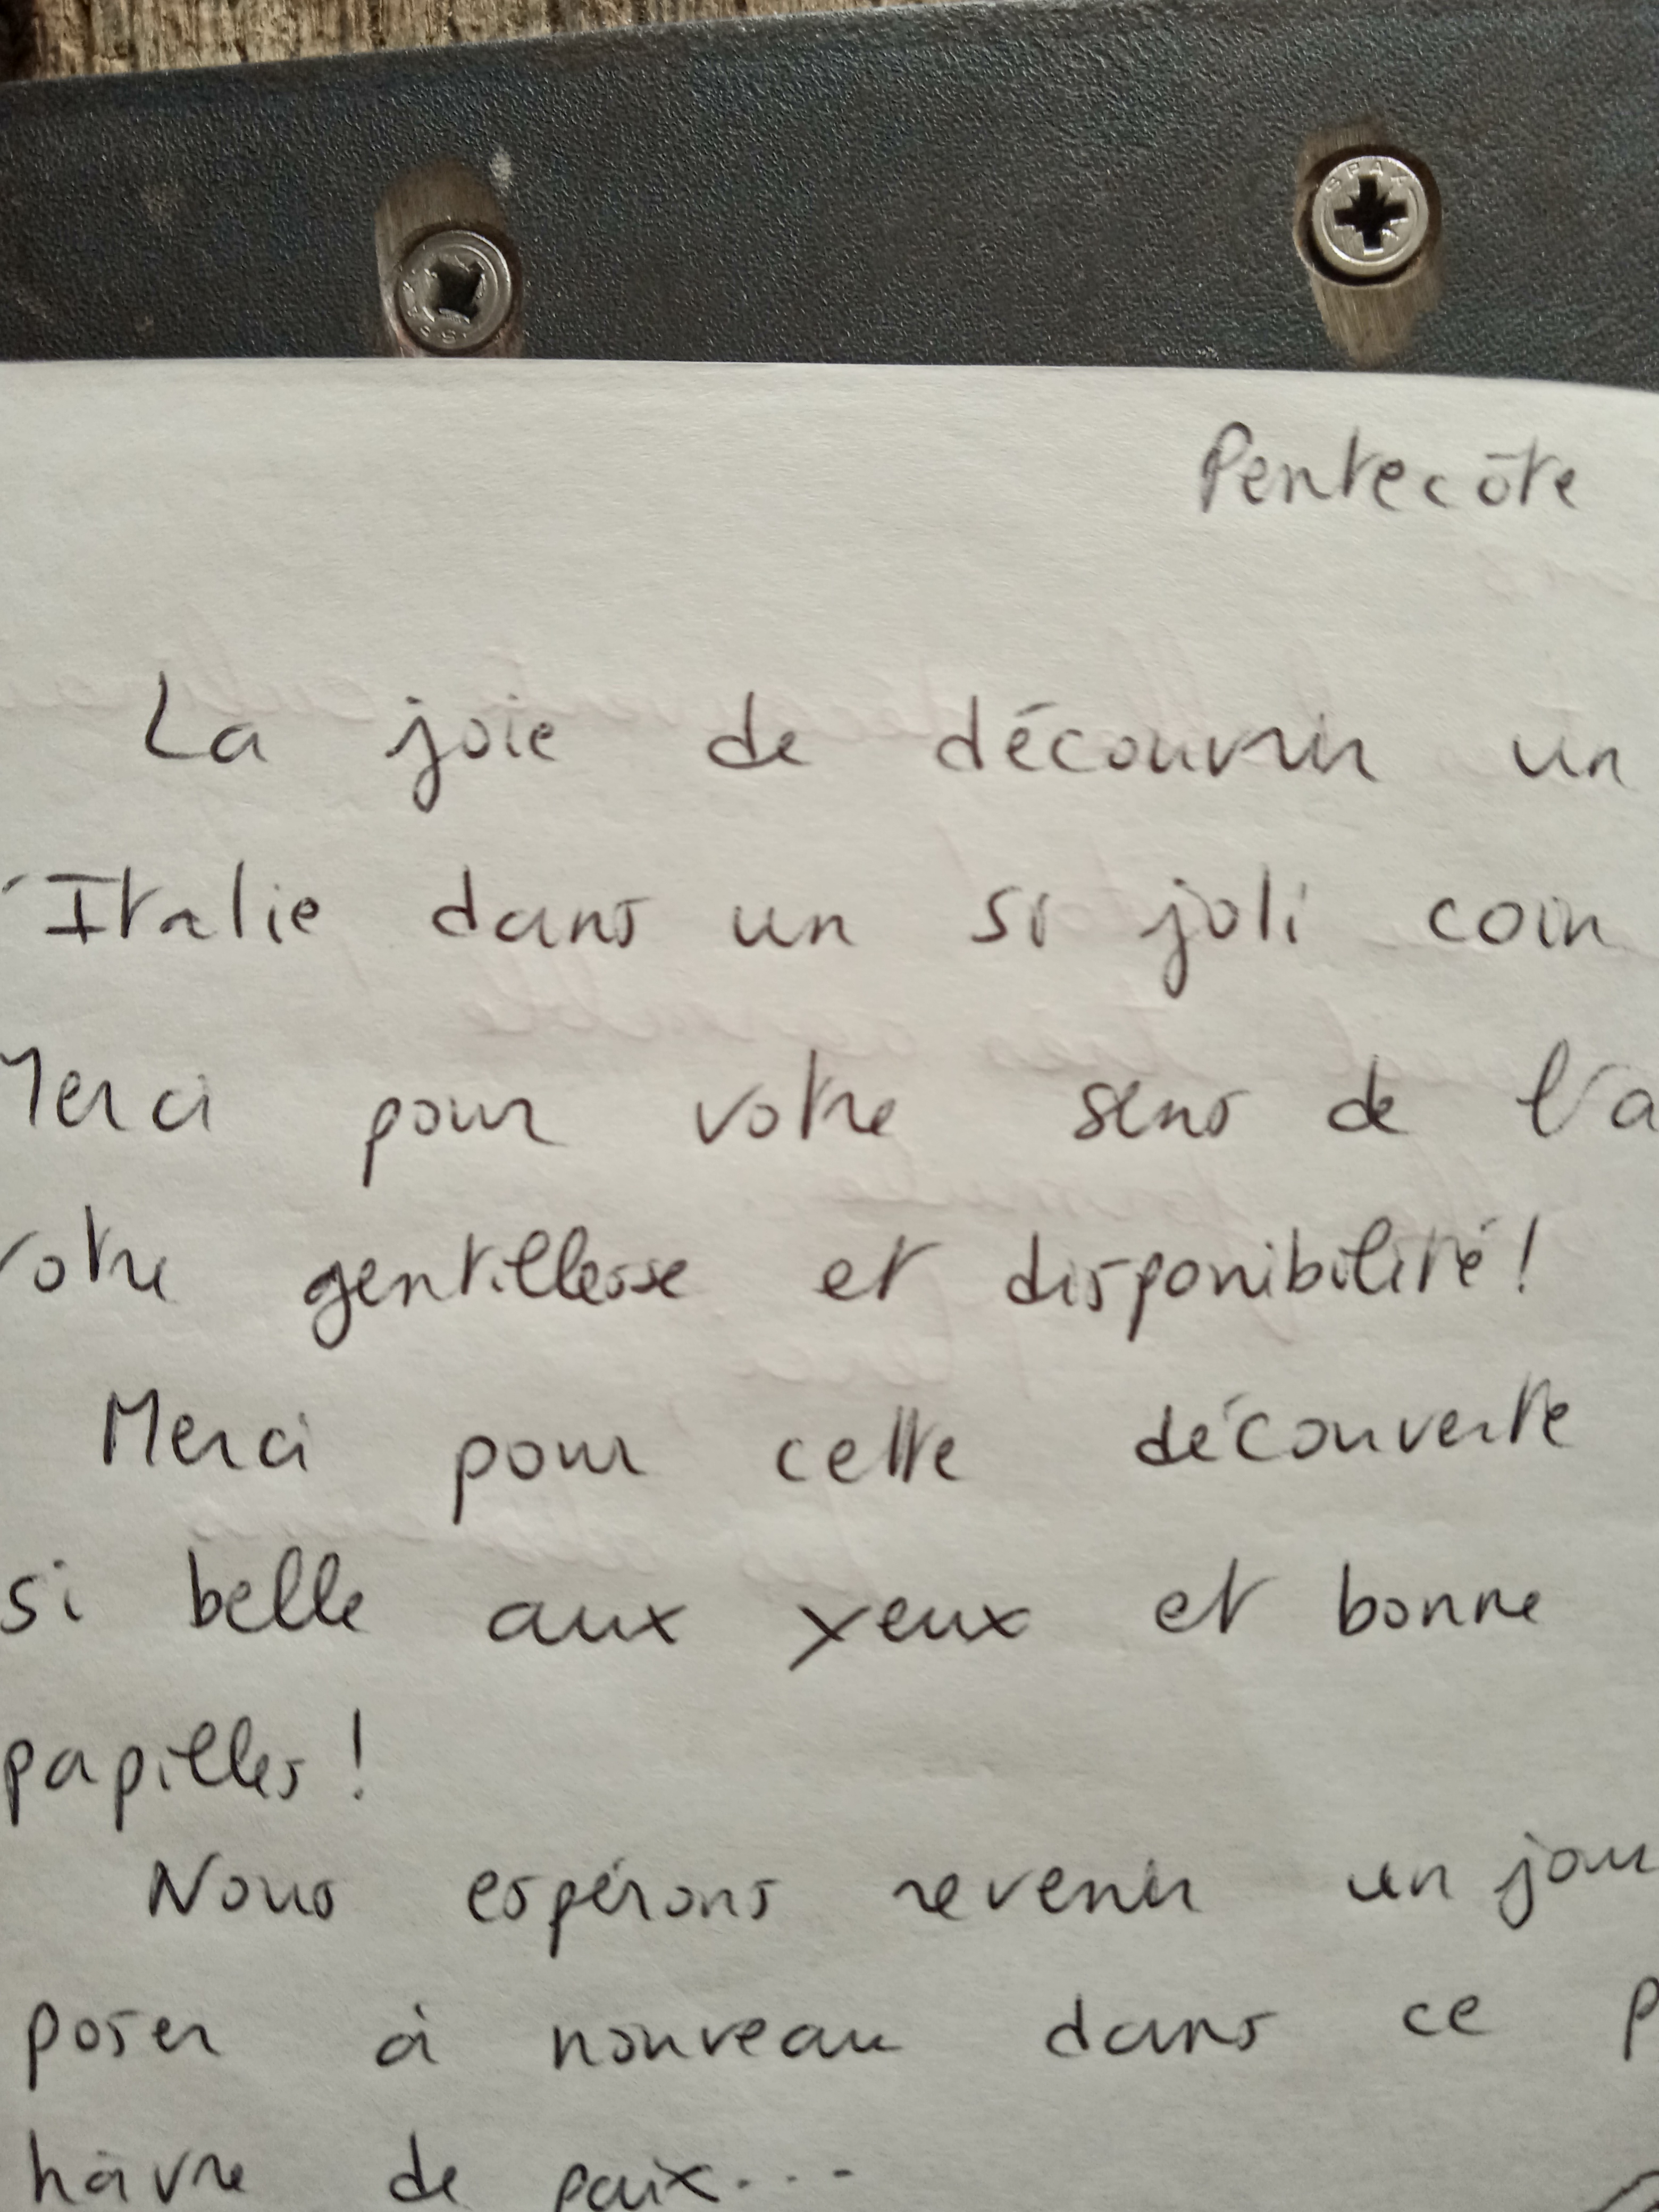 SPAX
Pentecôte
La joie de découvrir un
'Italie dans un si joli coin
Merci pour votre sens de l'a
votre gentillesse et disponibilité!
Merci pour cette découverte
si belle aux yeux et bonne
papilles!
Nous espérons revenir un jour
poser à nouveau dans ce p
hâvre de paix...